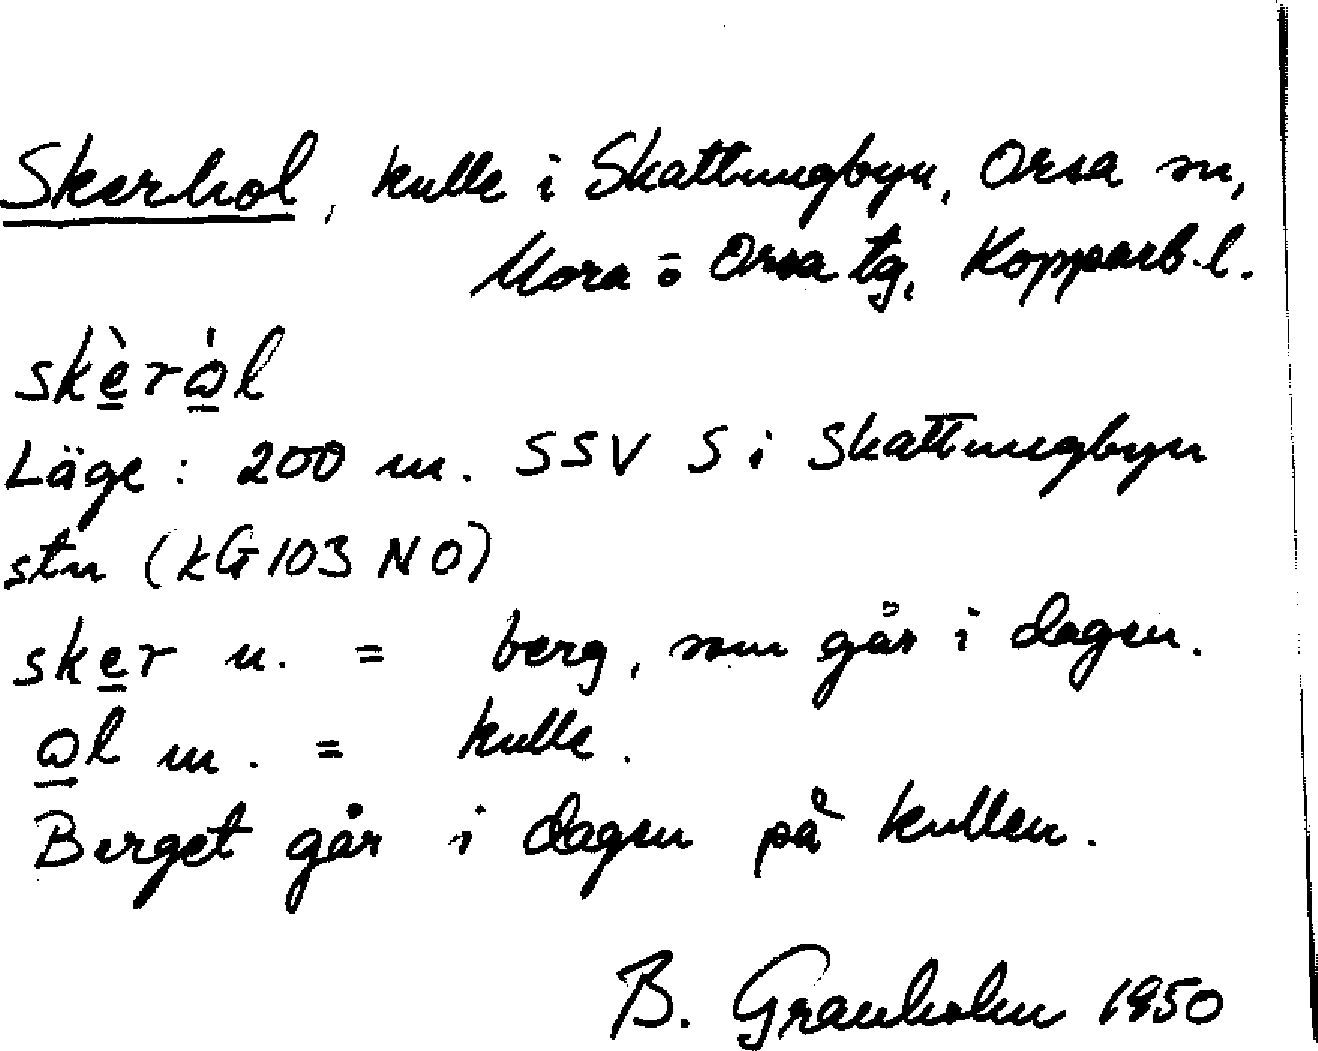 Skerhol, kulle i Skattungbyn, Orsa sn,
Mora o Orsa tg, Kopparb. l.
skèròl
Läge: 200 m. SSV S i Skattungbyn
stn (kG 103 NO)
sker n. = berg, som går i dagen.
ol m. = kulle.
Berget går i dagen på kullen.
B. Granholm 1950